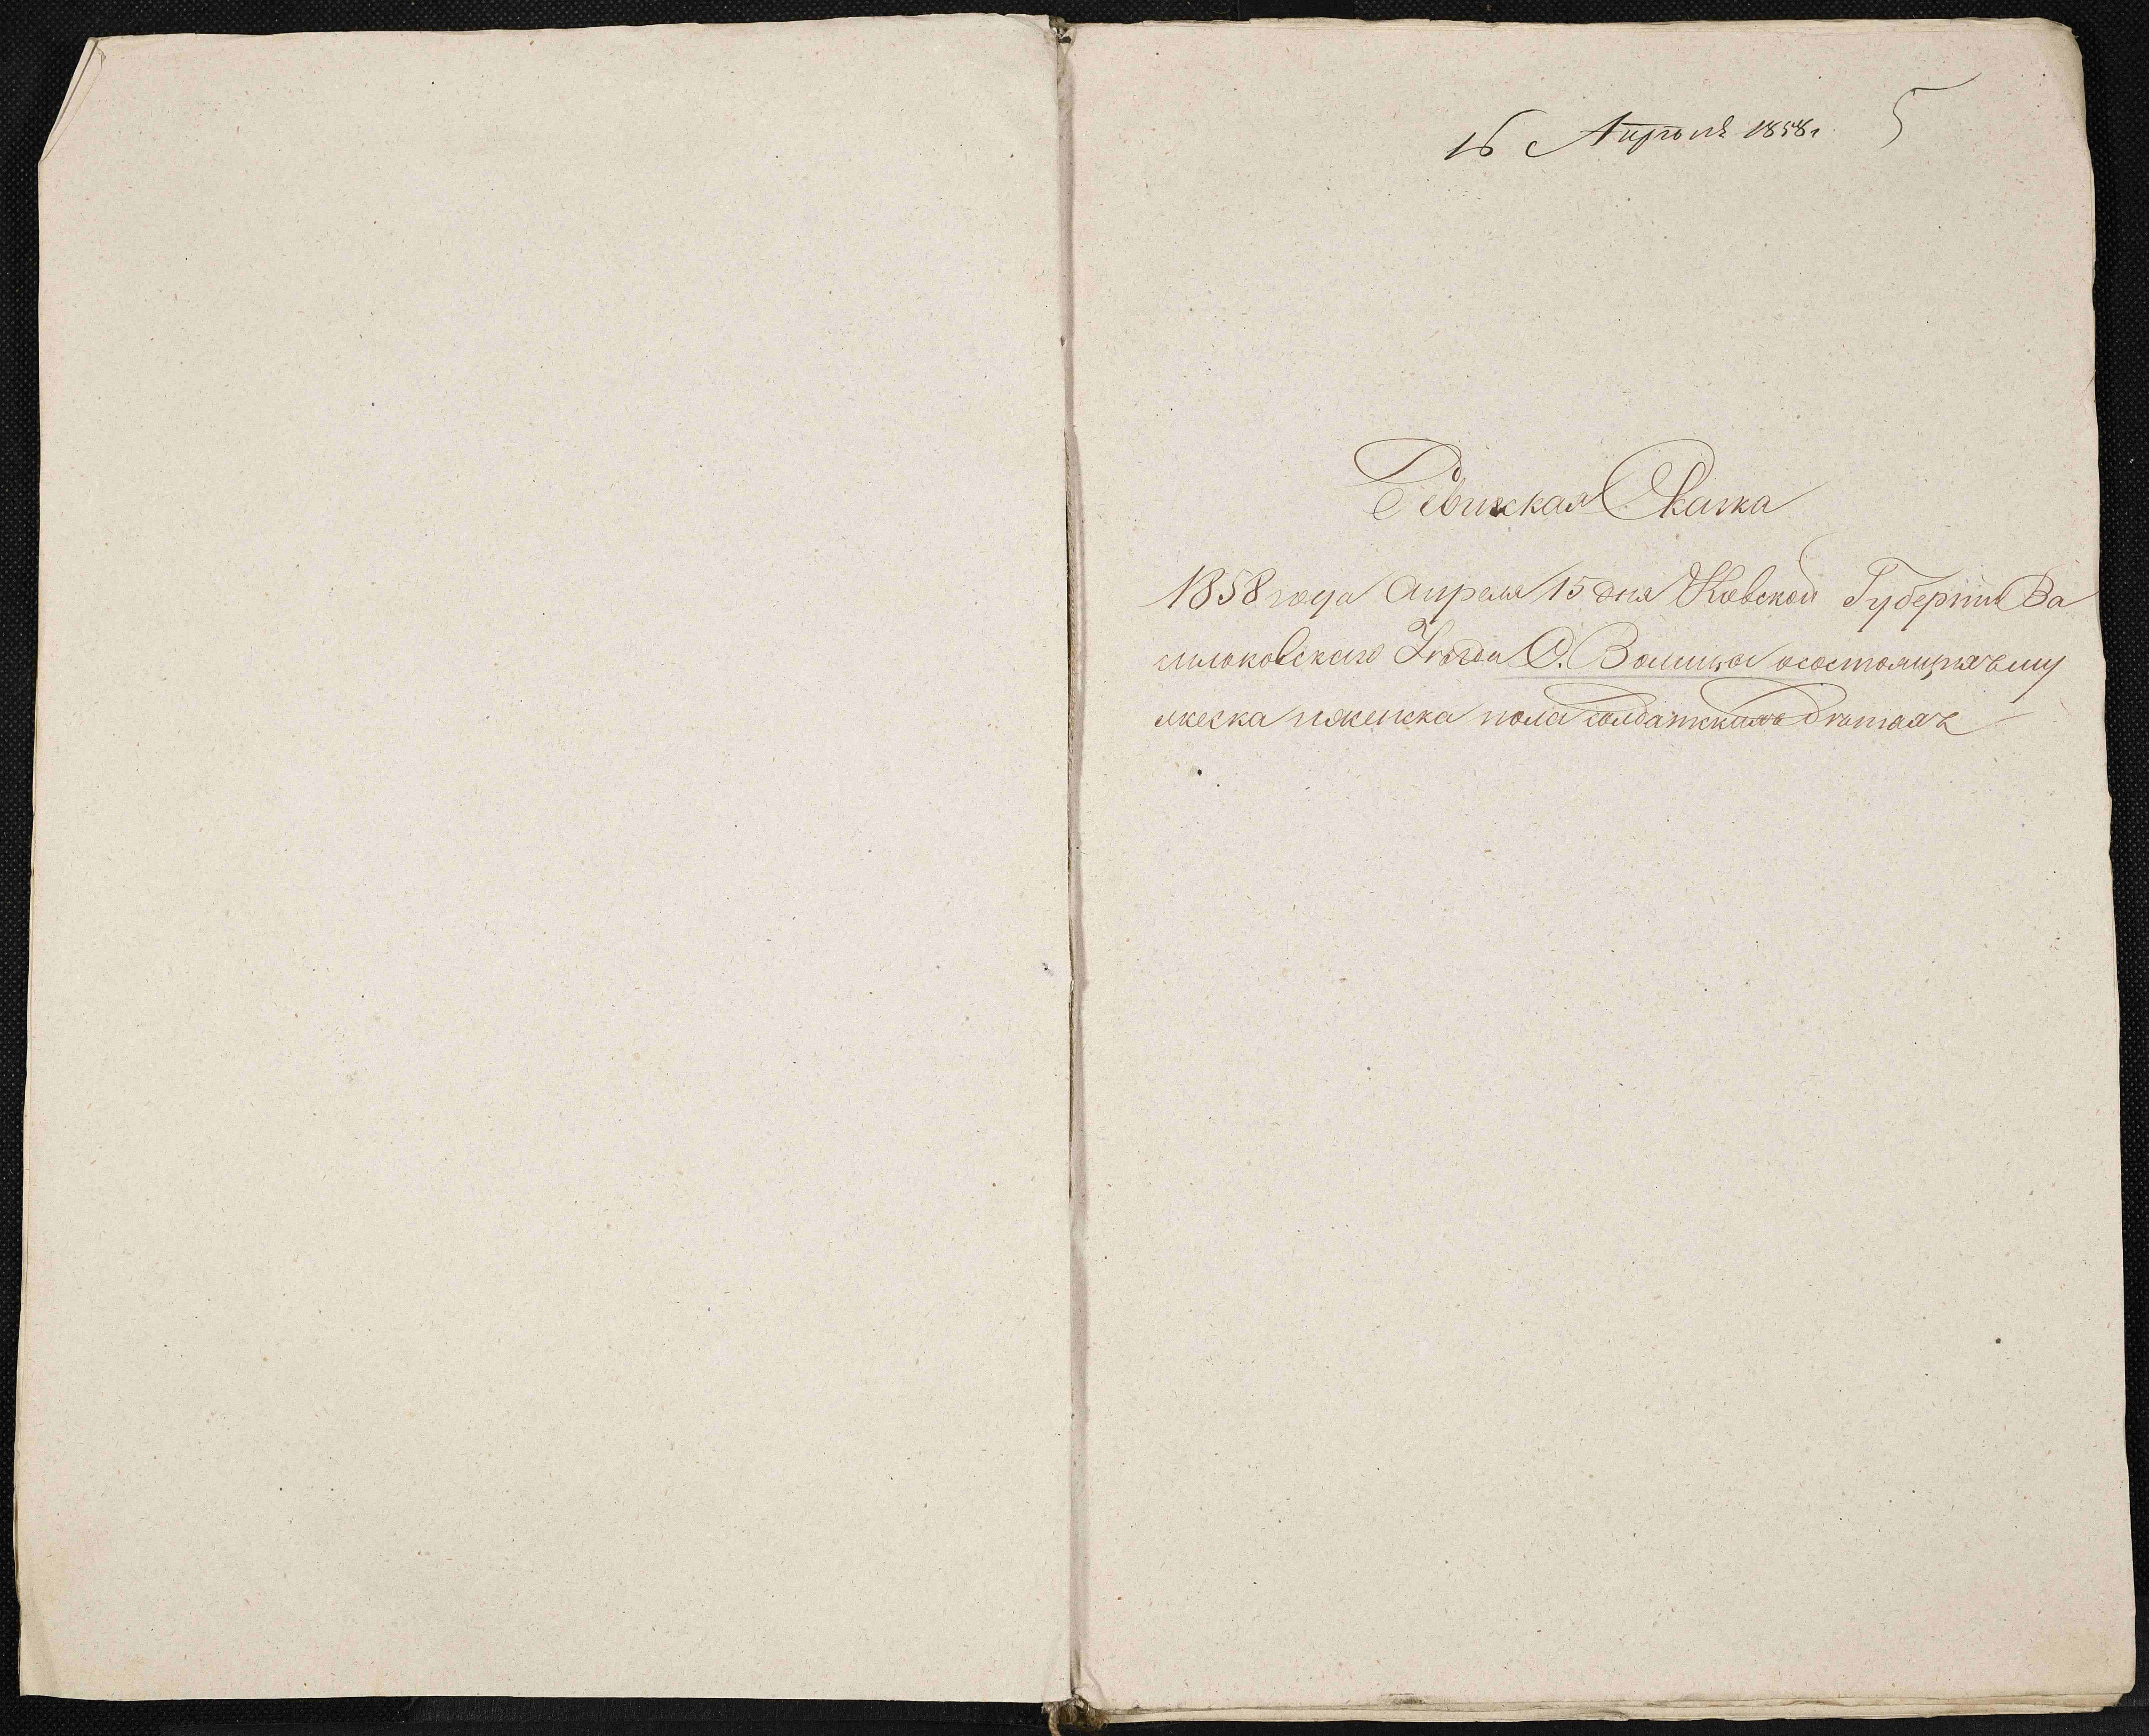 16 Апрѣля 1858 г. 5
Ревизская Сказка
1858 года Апреля 15 дня Кіевской Губерніи Ва
сильковскаго Уѣзда С. о состоящихъ
мужеска и женска пола солдатскихъ